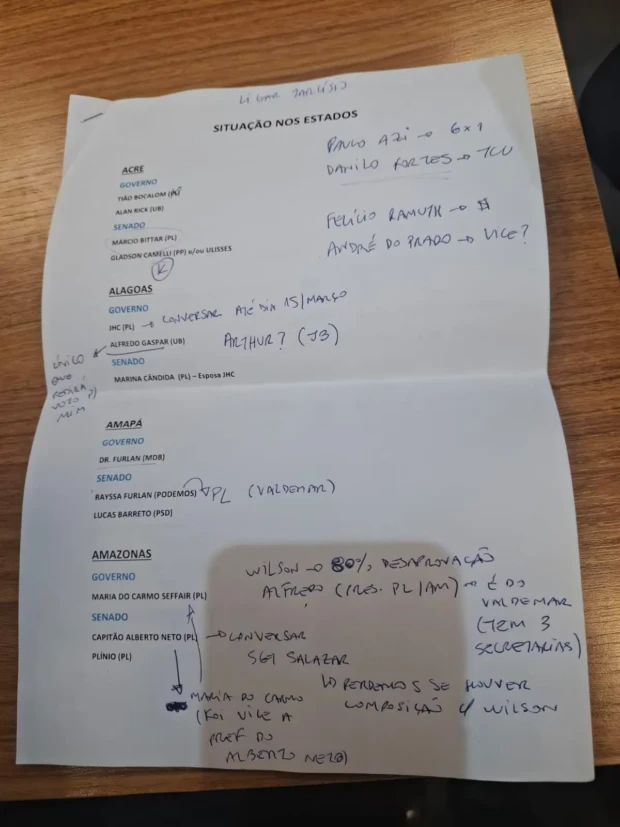 LIGAR TARCÍSIO
SITUAÇÃO NOS ESTADOS
PAULO AZI → 6x1
DANILO FORTES → TCU
FELÍCIO RAMUTH → $
ANDRÉ DO PRADO → VICE?
ACRE
GOVERNO
TIÃO BOCALOM
ALAN RICK (UB)
SENADO
MÁRCIO BITTAR (PL)
GLADSON CAMELLI (PP) e/ou ULISSES
ALAGOAS
GOVERNO
JHC (PL) → CONVERSAR ATÉ DIA 15/MARÇO
ALFREDO GASPAR (UB) ARTHUR? (JB)
ÚNICO
QUE
PEDIRÁ
VOTO P/
MIM
SENADO
MARINA CÂNDIDA (PL) – Esposa JHC
AMAPÁ
GOVERNO
DR. FURLAN (MDB)
SENADO
RAYSSA FURLAN (PODEMOS) → PL (VALDEMAR)
LUCAS BARRETO (PSD)
AMAZONAS
GOVERNO
MARIA DO CARMO SEFFAIR (PL)
SENADO
CAPITÃO ALBERTO NETO (PL) → CONVERSAR
PLÍNIO (PL)
WILSON → 80% DESAPROVAÇÃO
ALFREDO (PRES. PL/AM) → É DO
VALDEMAR
(TEM 3
SECRETARIAS)
SGT SALAZAR
↳ PERDEMOS SE HOUVER
COMPOSIÇÃO C/ WILSON
MARIA DO CARMO
(FOI VICE A
PREF DO
ALBERTO NETO)